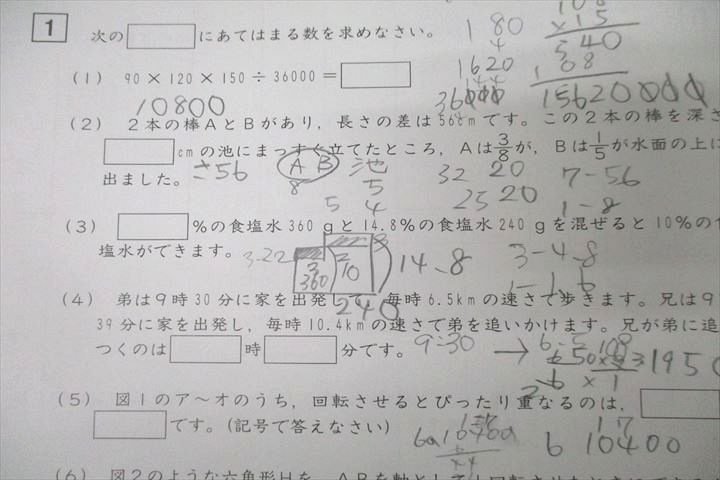 1 次の にあてはまる数を求めなさい。
180
108
×15
540
108
15620000
4
1620
44
36000
(1) 90×120×150÷36000=
10800
(2) 2本の棒AとBがあり,長さの差は56cmです。この2本の棒を深さ
cmの池にまっすぐ立てたところ,Aは3/8が,Bは1/5が水面の上に
出ました。
さ56
A B
池
8
5
5 4
32 20
25 20
7-56
1-8
(3) %の食塩水360gと14.8%の食塩水240gを混ぜると10%の
塩水ができます。
3-22
3
360
10
14.8
240
3-4.8
1-1.6
(4) 弟は9時30分に家を出発して,毎時6.5kmの速さで歩きます。兄は9
39分に家を出発し,毎時10.4kmの速さで弟を追いかけます。兄が弟に追
つくのは 時 分です。
9:30
→
1950
(5) 図1のア〜オのうち,回転させるとぴったり重なるのは,
です。(記号で答えなさい)
17
6 10400
(6) 図2のような六角形Hを,ABを軸として1回転させた